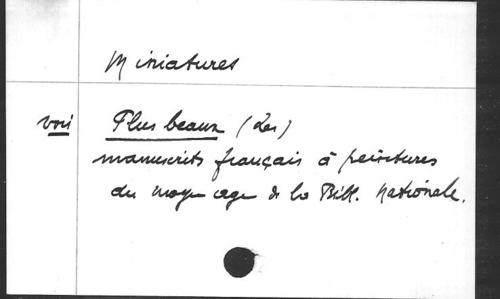 Miniatures
voir Plus beaux (Les)
manuscrits français à peintures
du moyen age de la Bibl. Nationale.